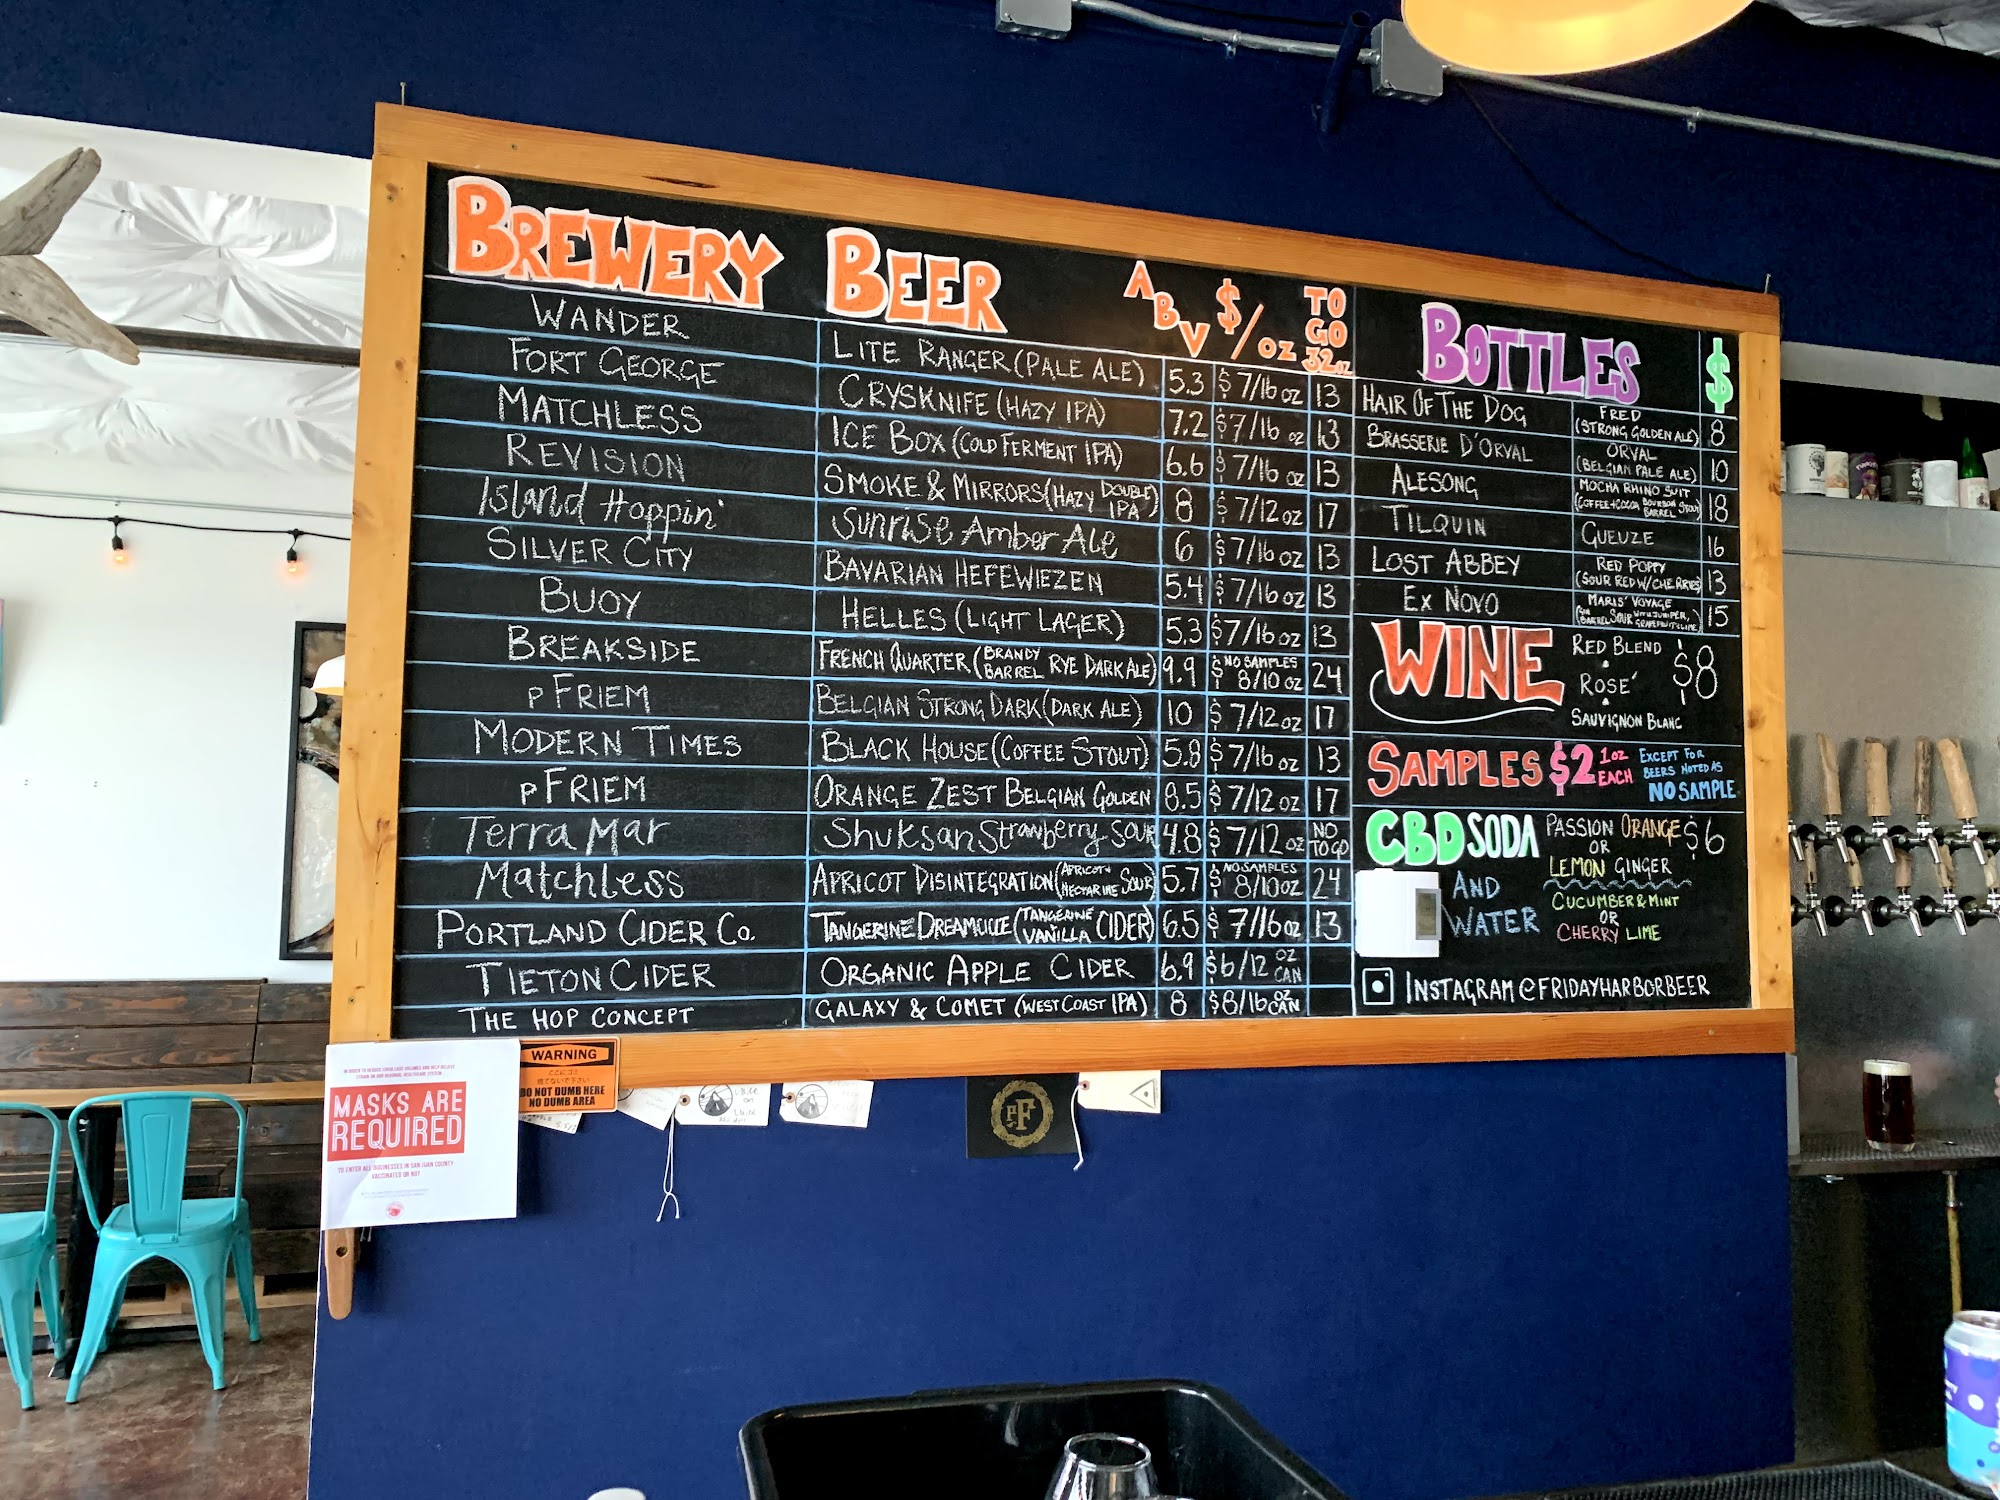 BREWERY BEER ABV $/OZ TO GO 32OZ
WANDER LITE RANGER (PALE ALE) 5.3 $7/16 OZ 13
FORT GEORGE CRYSKNIFE (HAZY IPA) 7.2 $7/16 OZ 13
MATCHLESS ICE BOX (COLD FERMENT IPA) 6.6 $7/16 OZ 13
REVISION SMOKE & MIRRORS (HAZY DOUBLE IPA) 8 $7/12 OZ 17
Island Hoppin' Sunrise Amber Ale 6 $7/16 OZ 13
SILVER CITY BAVARIAN HEFEWIEZEN 5.4 $7/16 OZ 13
BUOY HELLES (LIGHT LAGER) 5.3 $7/16 OZ 13
BREAKSIDE FRENCH QUARTER (BRANDY BARREL RYE DARK ALE) 9.9 NO SAMPLES $8/10 OZ 24
pFRIEM BELGIAN STRONG DARK (DARK ALE) 10 $7/12 OZ 17
MODERN TIMES BLACK HOUSE (COFFEE STOUT) 5.8 $7/16 OZ 13
pFRIEM ORANGE ZEST BELGIAN GOLDEN 8.5 $7/12 OZ 17
Terra Mar Shuksan Strawberry Sour 4.8 $7/12 OZ NO TO GO
Matchless APRICOT DISINTEGRATION (APRICOT + NECTARINE SOUR) 5.7 NO SAMPLES $8/10 OZ 24
PORTLAND CIDER Co. TANGERINE DREAMCICLE (TANGERINE VANILLA CIDER) 6.5 $7/16 OZ 13
TIETON CIDER ORGANIC APPLE CIDER 6.9 $6/12 OZ CAN
THE HOP CONCEPT GALAXY & COMET (WEST COAST IPA) 8 $8/16 OZ CAN
BOTTLES $
HAIR OF THE DOG FRED (STRONG GOLDEN ALE) 8
BRASSERIE D'ORVAL ORVAL (BELGIAN PALE ALE) 10
ALESONG MOCHA RHINO SUIT (COFFEE + COCOA BOURBON STOUT BARREL) 18
TILQUIN GUEUZE 16
LOST ABBEY RED POPPY (SOUR RED W/ CHERRIES) 13
EX NOVO MARIS' VOYAGE (GIN BARREL SOUR WITH JUNIPER, GRAPEFRUIT & LIME) 15
WINE RED BLEND • ROSE' • SAUVIGNON BLANC $8
SAMPLES $2 1OZ EACH EXCEPT FOR BEERS NOTED AS NO SAMPLE
CBD SODA PASSION ORANGE $6
OR
LEMON GINGER
AND WATER CUCUMBER & MINT
OR
CHERRY LIME
INSTAGRAM @FRIDAYHARBORBEER
MASKS ARE
REQUIRED
TO ENTER ALL BUSINESSES IN SAN JUAN COUNTY
VACCINATED OR NOT
WARNING
ここにゴミ
捨てないで下さい
DO NOT DUMB HERE
NO DUMB AREA
PF